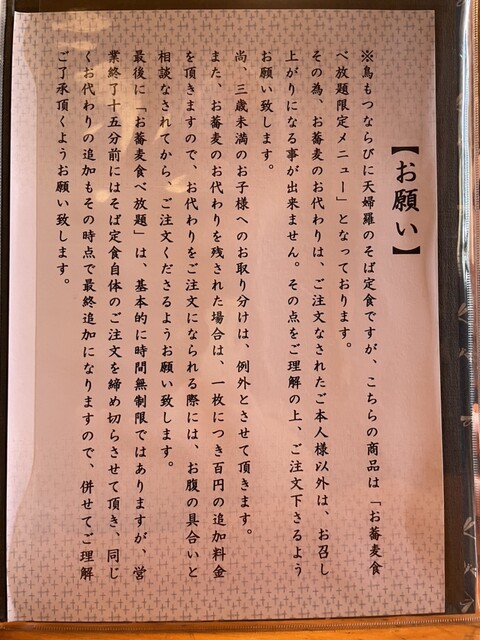 【お願い】
※鳥もつならびに天婦羅のそば定食ですが、こちらの商品は「お蕎麦食
べ放題限定メニュー」となっております。
その為、お蕎麦のお代わりは、ご注文なされたご本人様以外は、お召し
上がりになる事が出来ません。その点をご理解の上、ご注文下さるよう
お願い致します。
尚、三歳未満のお子様へのお取り分けは、例外とさせて頂きます。
また、お蕎麦のお代わりを残された場合は、一枚につき百円の追加料金
を頂きますので、お代わりをご注文になられる際には、お腹の具合いと
相談なされてから、ご注文くださるようお願い致します。
最後に「お蕎麦食べ放題」は、基本的に時間無制限ではありますが、営
業終了十五分前にはそば定食自体のご注文を締め切らさせて頂き、同じ
くお代わりの追加もその時点で最終追加になりますので、併せてご理解
ご了承頂くようお願い致します。